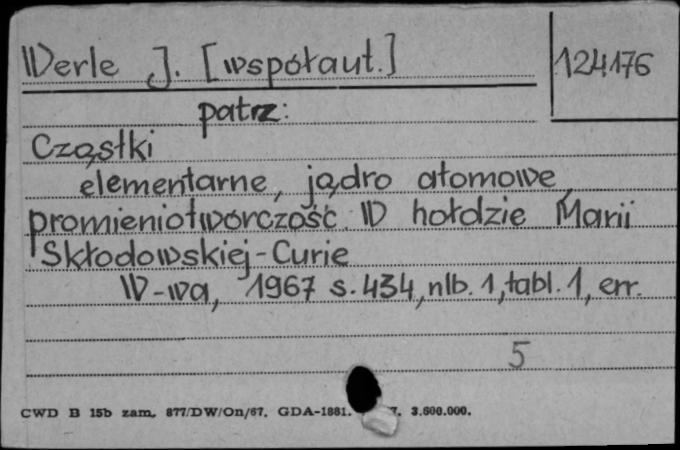 Werle J. [współaut.]
124176
patrz:
Cząstki
elementarne, jądro atomowe,
promieniotwórczość. W hołdzie Marii
Skłodowskiej-Curie
W-wa, 1967 s. 434, nlb. 1, tabl. 1, err.
5
CWD B 15b zam. 877/DW/On/67. GDA-1881. 7. 3.600.000.